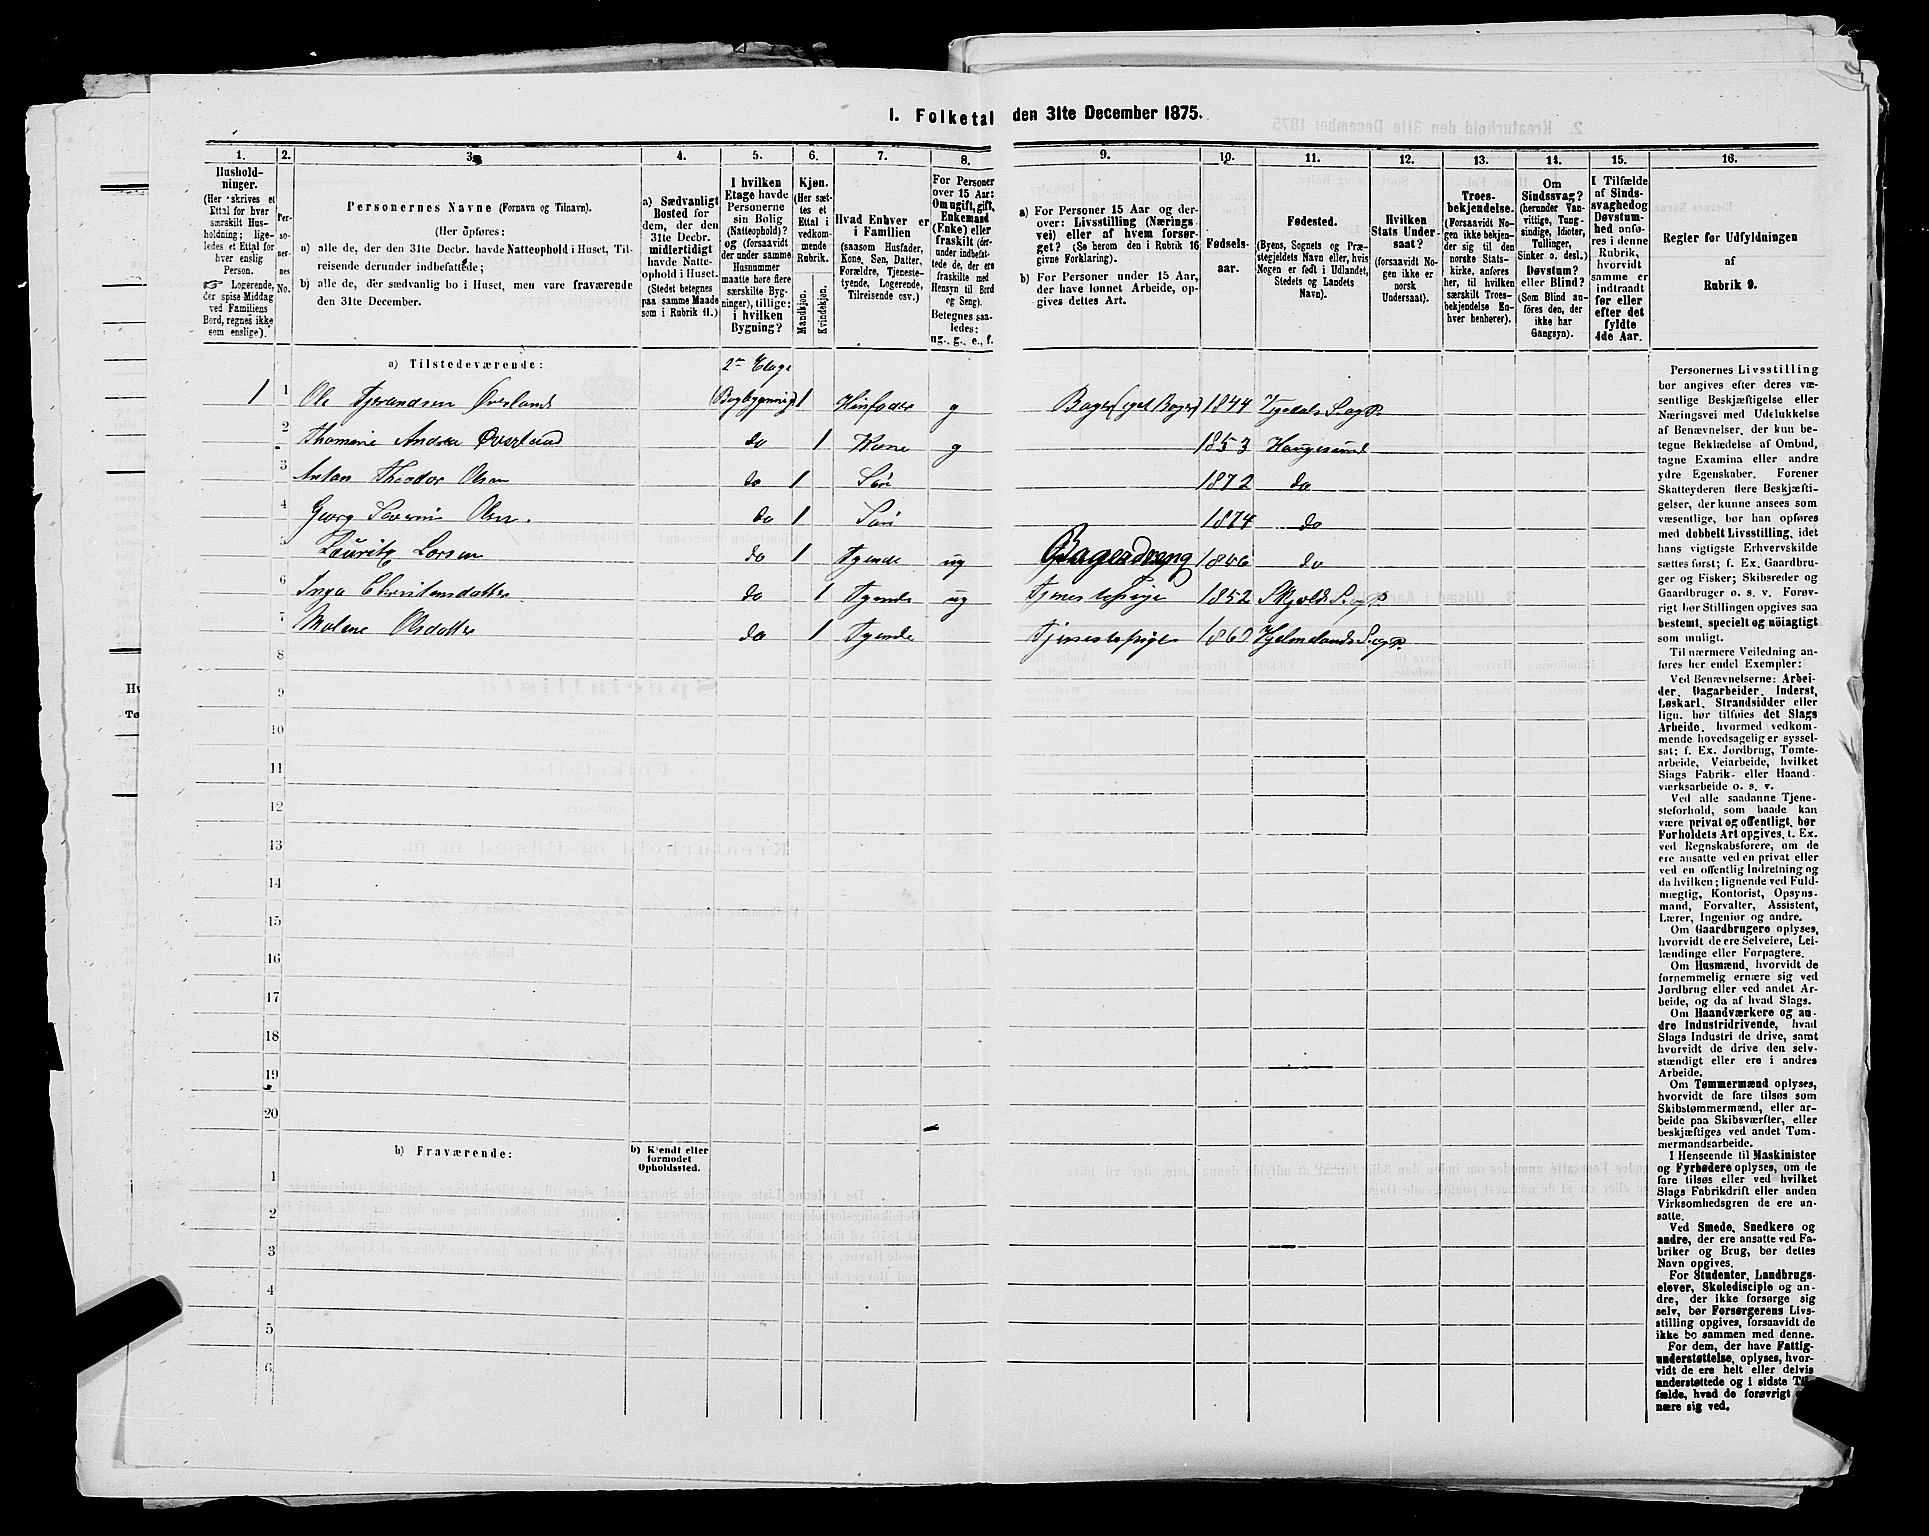 1. Folketal den 31te December 1875.
1. 2. 3. 4. 5. 6. 7. 8. 9. 10. 11. 12. 13. 14. 15. 16.
Husholdninger.
(Her skrives et
Ettal for hver
særskilt Husholdning;
ligeledes et Ettal for
hver enslig
Person.
Logerende,
der spise Middag
ved Familiens
Bord, regnes ikke
som enslige).
Personernes No.
Personernes Navne (Fornavn og Tilnavn).
(Her opføres:
a) alle de, der den 31te Decbr. havde Natteophold i Huset, Tilreisende derunder indbefattede;
b) alle de, der sædvanlig bo i Huset, men vare fraværende
den 31te December.
a) Sædvanligt
Bosted for
dem, der den
31te Decbr.
midlertidigt
havde Natteophold i Huset.
(Stedet betegnes
paa samme Maade
som i Rubrik 11.)
I hvilken
Etage havde
Personerne
sin Bolig
(Natteophold)?
og (forsaavidt
der under samme
Husnummer
maatte høre flere
særskilte Bygninger), tillige:
i hvilken
Bygning?
Kjøn.
(Her sættes et
Ettal i
vedkommende
Rubrik.
Mandkjøn.
Kvindekjøn.
Hvad Enhver er
i Familien
(saasom Husfader,
Kone, Søn, Datter,
Forældre, Tjenestetyende, Logerende,
Tilreisende osv.)
For Personer
over 15 Aar:
Om ugift, gift,
Enkemand
(Enke) eller
fraskilt (derunder indbefattede de, der ere
fraskilte med
Hensyn til Bord
og Seng).
Betegnes saaledes:
ug., g., e., f.
a) For Personer 15 Aar og derover: Livsstilling (Næringsvei) eller af hvem forsørget? (Se herom den i Rubrik 16
givne Forklaring).
b) For Personer under 15 Aar,
der have lønnet Arbeide, opgives dettes Art.
Fødselsaar.
Fødested.
(Byens, Sognets og Præstegjeldets Navn eller, hvis
Nogen er født i Udlandet,
Stedets og Landets
Navn).
Hvilken
Stats Undersaat?
(forsaavidt Nogen ikke er
norsk
Undersaat).
Troesbekjendelse.
(Forsaavidt Nogen ikke bekjender sig til den
norske Statskirke, anføres
her, til hvilken
særskilt Troesbekjendelse Enhver henhører).
Om
Sindssvag?
(herunder Vanvittige, Tungsindige, Idioter,
Tullinger,
Sinker o. desl.)
Døvstum?
eller Blind?
(Som Blind anføres den, der
ikke har
Gangsyn).
I Tilfælde
af Sindssvaghed og
Døvstumhed anføres i denne
Rubrik,
hvorvidt
samme er
indtraadt
før eller
efter det
fyldte
4de Aar.
Regler for Udfyldningen
af
Rubrik 9.
a) Tilstedeværende: 2en Etage
1 1 Ole Tjerandsen Øverland Bagbygning 1 Husfader g Bager (eget Bageri) 1844 Vigedals S. og P.
2 Thomine Andrea Øverland do 1 Kone g 1853 Haugesund
3 Anton Theodor Olsen do 1 Søn 1872 do
4 Georg Severin Olsen do 1 Søn 1874 do
5 Lauritz Larsen do 1 Tyende ug Bagerdreng 1856 do
6 Inga Christensdatter do 1 Tyende ug Tjenestepige 1852 Skjolds S. og P.
7 Malene Olsdatter do 1 Tyende Tjenestepige 1860 Hjelmelands S. og P.
8
9
10
11
12
13
14
15
16
17
18
19
20
b) Fraværende: b) Kjendt eller
formodet
Opholdssted.
1
2
3
4
5
6
Personernes Livsstilling
bør angives efter deres væsentlige Beskjæftigelse eller
Næringsvei med Udelukkelse
af Benævnelser, der kun betegne Beklædelse af Ombud,
tagne Examina eller andre
ydre Egenskaber. Forener
Skatteyderen flere Beskjæftigelser, der kunne ansees som
væsentlige, bør han opføres
med dobbelt Livsstilling, idet
hans vigtigste Erhvervskilde
sættes først; f. Ex. Gaardbruger og Fisker; Skibsreder og
Gaardbruger o. s. v. Forøvrigt bør Stillingen opgives saa
bestemt, specielt og nøiagtigt
som muligt.
Til nærmere Veiledning anføres her endel Exempler:
Ved Benævnelserne: Arbeider, Dagarbeider, Inderst,
Løskarl, Strandsidder eller
lign. bør tilføies det Slags
Arbeide, hvormed vedkommende hovedsagelig er sysselsat; f. Ex. Jordbrug, Tomtearbeide, Veiarbeide, hvilket
Slags Fabrik- eller Haandværksarbeide o. s. v.
Ved alle saadanne Tjenesteforhold, som baade kan
være privat og offentligt, bør
Forholdets Art opgives, t. Ex.
ved Regnskabsførere, om de
ere ansatte ved en privat eller
ved en offentlig Indretning og
da hvilken; lignende ved Fuldmægtig, Kontorist, Opsynsmand, Forvalter, Assistent,
Lærer, Ingeniør og andre.
Om Gaardbrugere oplyses,
hvorvidt de ere Selveiere, Leilændinge eller Forpagtere.
Om Husmænd, hvorvidt de
fornemmelig ernære sig ved
Jordbrug eller ved andet Arbeide, og da af hvad Slags.
Om Haandværkere og andre Industridrivende, hvad
Slags Industri de drive, samt
hvorvidt de drive den selvstændigt eller ere i andres
Arbeide.
Om Tømmermænd oplyses,
hvorvidt de fare tilsøs som
Skibstømmermænd, eller arbeide paa Skibsværfter, eller
beskjæftiges ved andet Tømmermandsarbeide.
I Henseende til Maskinister
og Fyrbødere oplyses, om de
fare tilsøs eller ved hvilket
Slags Fabrikdrift eller anden
Virksomhedsgren de ere ansatte.
Ved Smede, Snedkere og
andre, der ere ansatte ved Fabriker og Brug, bør dettes
Navn opgives.
For Studenter, Landbrugselever, Skoledisciple og andre, der ikke forsørge sig
selv, bør Forsørgerens Livsstilling opgives, forsaavidt de
ikke bo sammen med denne.
For dem, der have Fattigunderstøttelse, oplyses, hvorvidt de ere helt eller delvis
understøttede og i sidste Tilfælde, hvad de forøvrigt
nære sig ved.